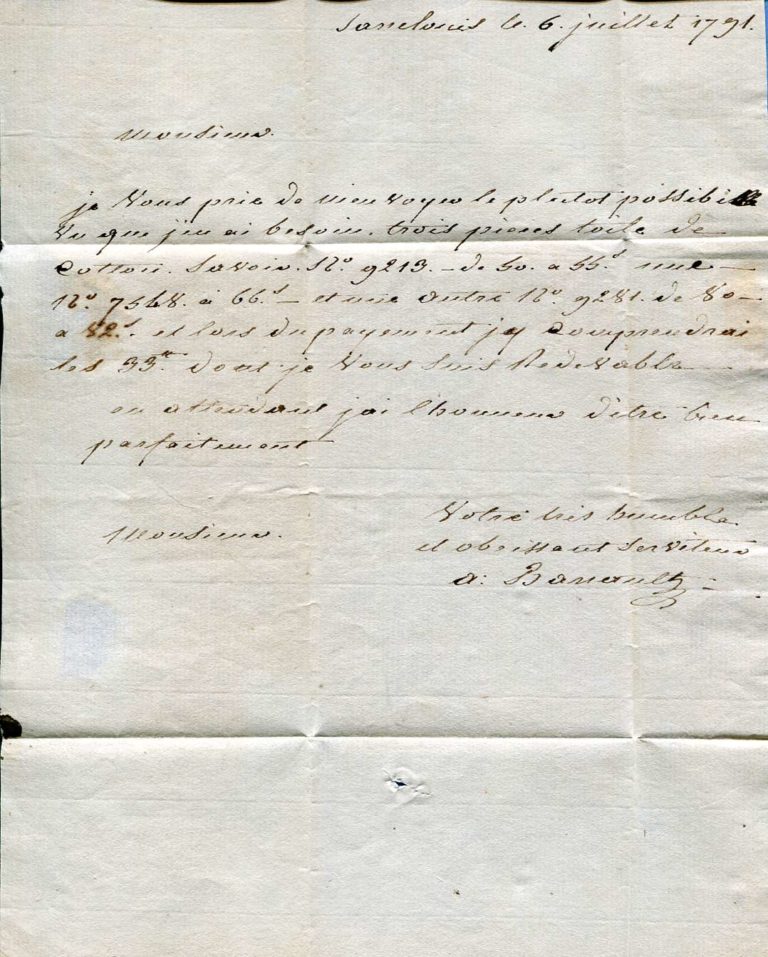 Sarrelouis le 6. juillet 1791.
Monsieur.
je Vous prie de m'envoyer le plutot possible
Vu que j'en ai besoin. trois pieces toile de
Cotton. Savoir. N.º 9213. - de 50. a 55.s une -
N.º 7568. à 66.s - et une autre N.º 9281. de 80 -
a 82.s et lors du payement j'y Comprendrai
les 33.tt dont je Vous suis Redevable
en attendant j'ai l'honneur d'être bien
parfaitement
Monsieur.
Votre très humble
et obeissant Serviteur
a: Barrault